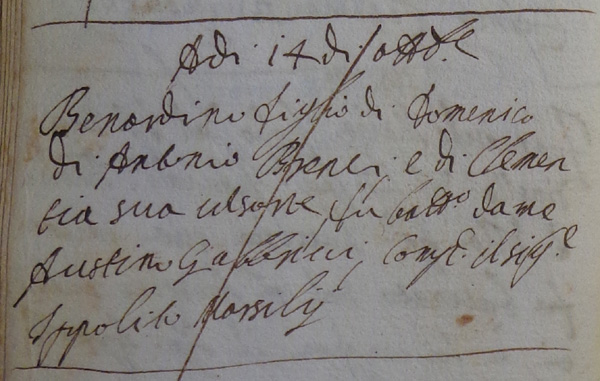 Adi 14 di ottb.e
Benardino figlio di Domenico
di Antonio e di Clemen
tia sua fu batt.o da me
Austino Gabbrieli, Comp.e il sig.e
Ippolito Marsilij